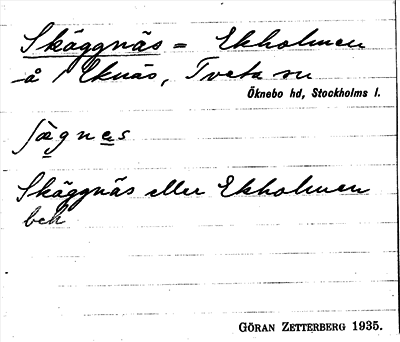 Skäggnäs = Ekholmen
å Eknäs, Tveta sn
Öknebo hd, Stockholms l.
Skäggnäs eller Ekholmen
beh
GÖRAN ZETTERBERG 1935.